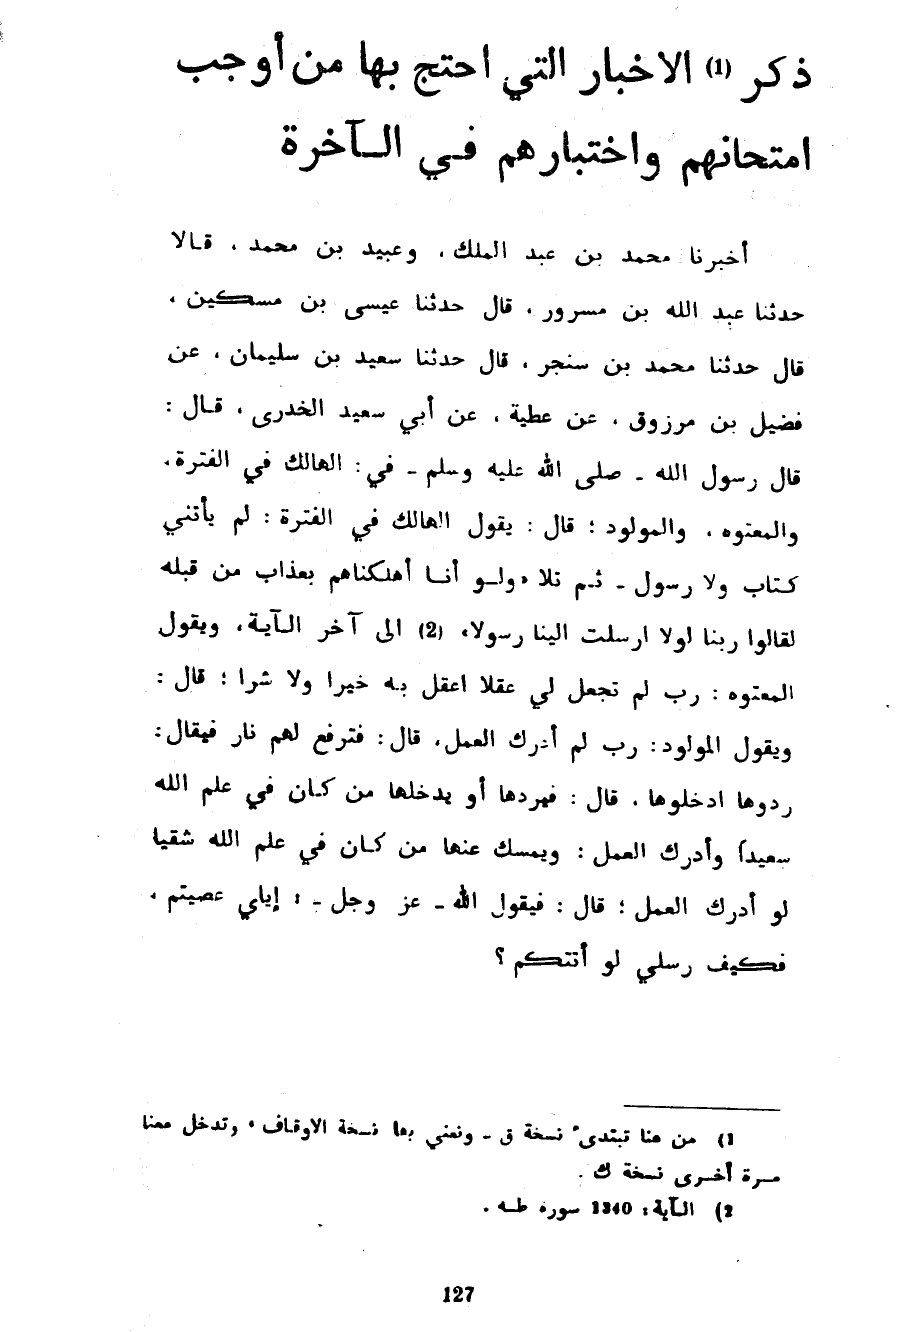 ذكر (1) الاخبار التي احتج بها من أوجب
امتحانهم واختبارهم في الآخرة
أخبرنا محمد بن عبد الملك ، وعبيد بن محمد ، قالا
حدثنا عبد الله بن مسرور ، قال حدثنا عيسى بن مسكين ،
قال حدثنا محمد بن سنجر ، قال حدثنا سعيد بن سليمان ، عن
فضيل بن مرزوق ، عن عطية ، عن أبي سعيد الخدرى ، قال :
قال رسول الله ـ صلى الله عليه وسلم ـ في : الهالك في الفترة ،
والمعتوه ، والمولود ؛ قال : يقول الهالك في الفترة : لم يأتني
كتاب ولا رسول ـ ثم تلا «ولو أنا أهلكناهم بعذاب من قبله
لقالوا ربنا لولا ارسلت الينا رسولا» (2) الى آخر الآية ، ويقول
المعتوه : رب لم تجعل لي عقلا اعقل به خيرا ولا شرا ؛ قال :
ويقول المولود : رب لم أدرك العمل ، قال : فترفع لهم نار فيقال :
ردوها ادخلوها ، قال : فيردها أو يدخلها من كان في علم الله
سعيدا وأدرك العمل : ويمسك عنها من كان في علم الله شقيا
لو أدرك العمل ؛ قال : فيقول الله ـ عز وجل ـ : إياي عصيتم ،
فكيف رسلي لو أتتكم ؟
1) من هنا تبتدىء نسخة ق ـ ونعني بها نسخة الاوقاف ، وتدخل معنا
مرة أخرى نسخة ك .
2) الآية : 1340 سورة طه .
127